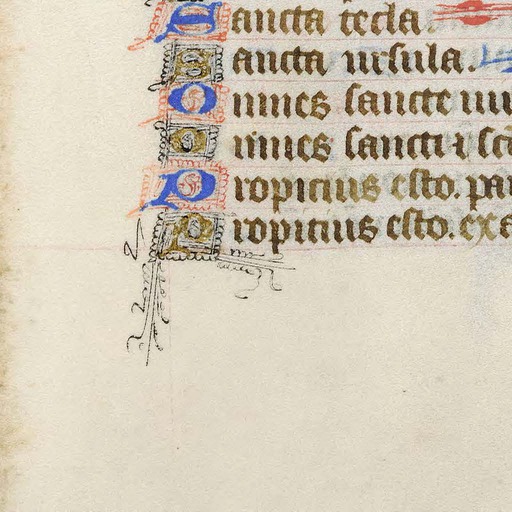 Sancta tecla
Sancta ursula.
Omnes sancte
Omnes sancti ⁊
Propicius esto.
Propicius esto.